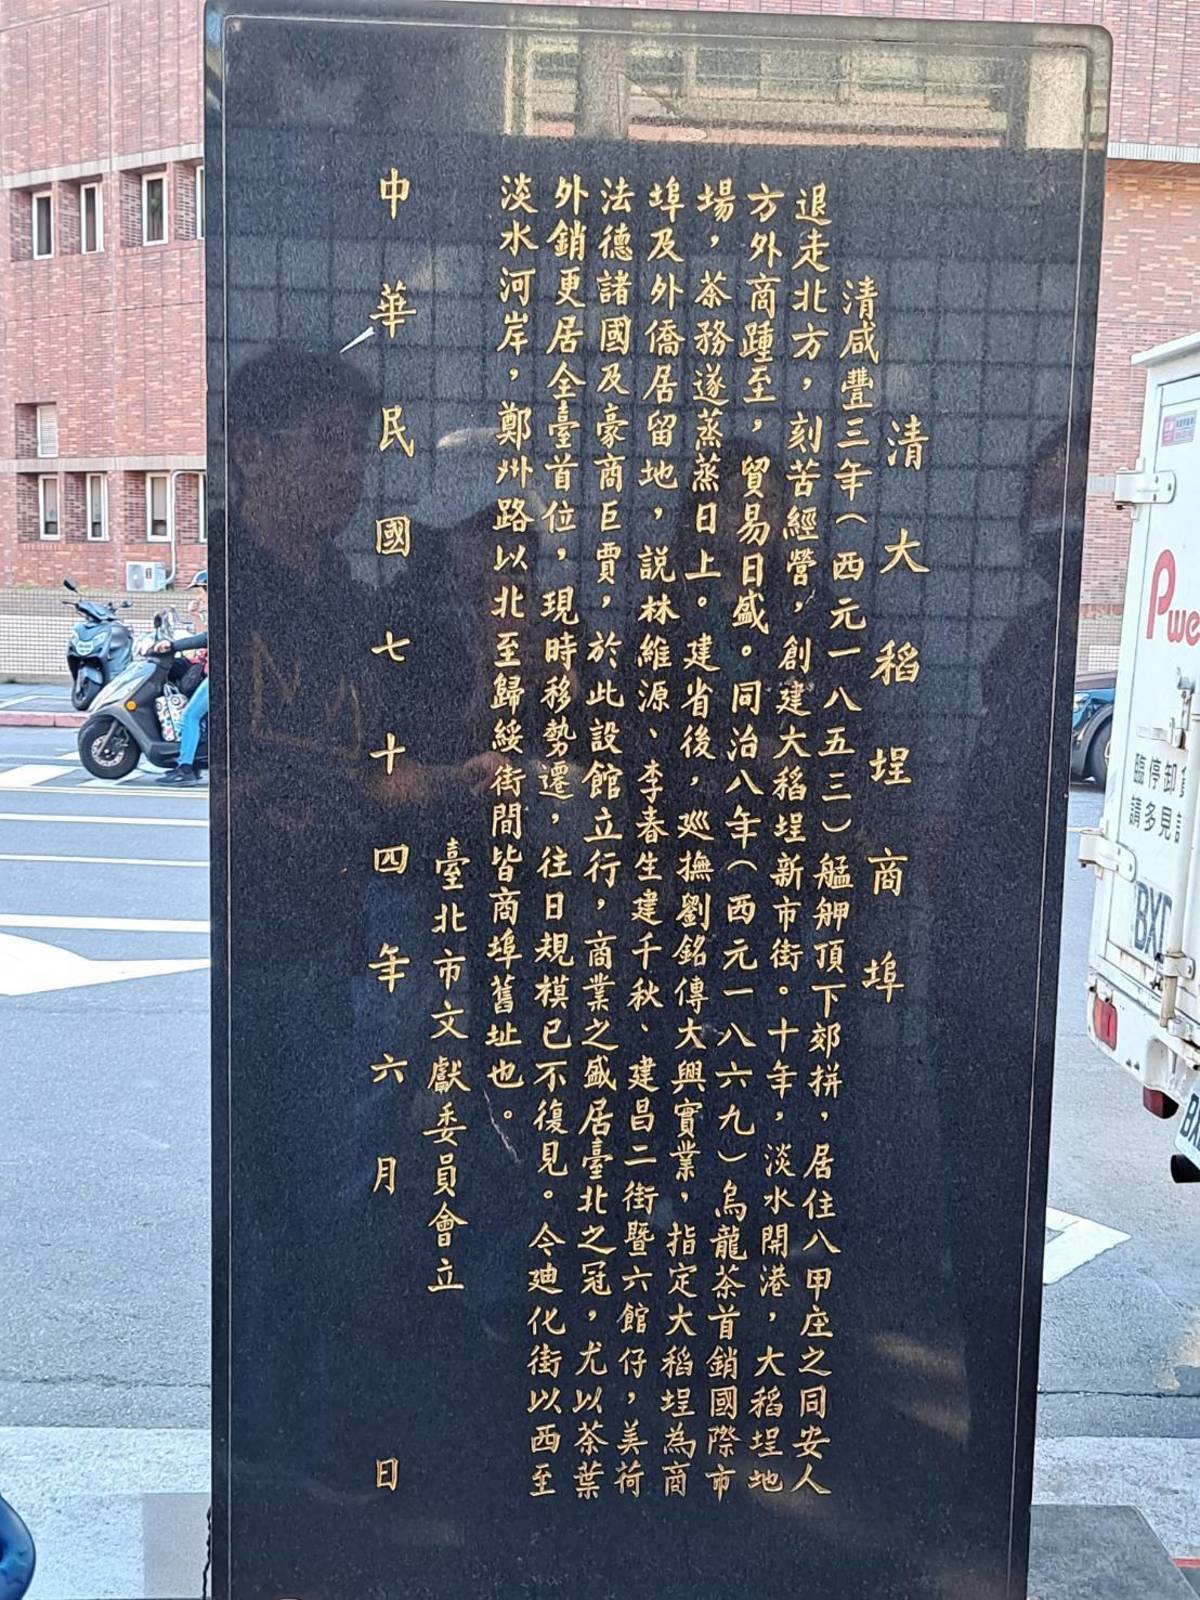 清大稻埕商埠
清咸豐三年（西元一八五三）艋舺頂下郊拼，居住八甲庄之同安人
退走北方，刻苦經營，創建大稻埕新市街。十年，淡水開港，大稻埕地
方外商踵至，貿易日盛。同治八年（西元一八六九）烏龍茶首銷國際市
場，茶務遂蒸蒸日上。建省後，巡撫劉銘傳大興實業，指定大稻埕為商
埠及外僑居留地，說林維源、李春生建千秋、建昌二街暨六館仔，美荷
法德諸國及豪商巨賈，於此設館立行，商業之盛居臺北之冠，尤以茶葉
外銷更居全臺首位，現時移勢遷，往日規模已不復見。今廸化街以西至
淡水河岸，鄭州路以北至歸綏街間皆商埠舊址也。
臺北市文獻委員會立
中華民國七十四年六月　日
臨停卸
請多見